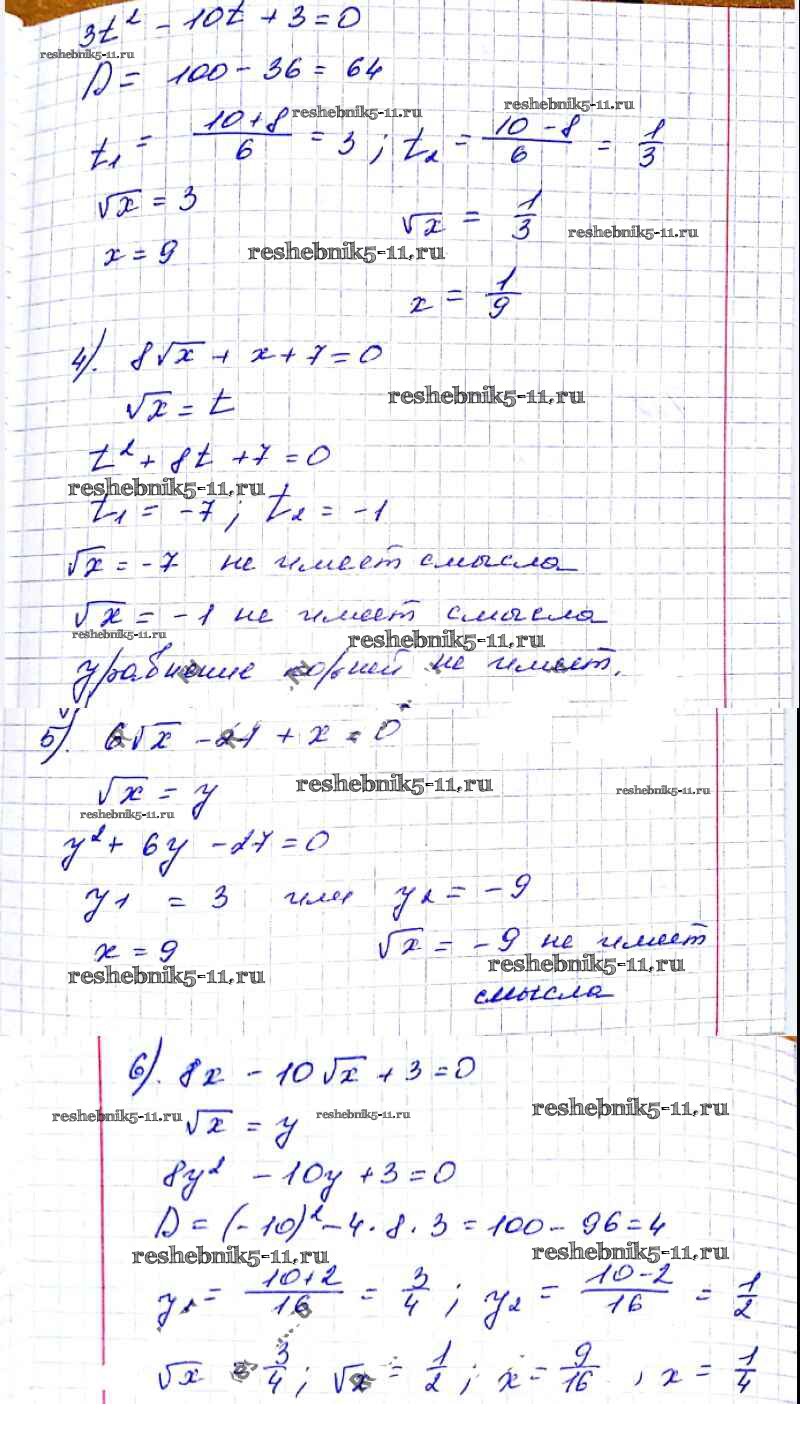 3t² - 10t + 3 = 0
reshebnik5-11.ru
D = 100 - 36 = 64
reshebnik5-11.ru reshebnik5-11.ru
t₁ = (10+8)/6 = 3 ; t₂ = (10-8)/6 = 1/3
√x = 3 √x = 1/3
reshebnik5-11.ru
x = 9 reshebnik5-11.ru
x = 1/9
4). 8√x + x + 7 = 0
√x = t reshebnik5-11.ru
t² + 8t + 7 = 0
reshebnik5-11.ru
t₁ = -7 ; t₂ = -1
√x = -7 не имеет смысла
√x = -1 не имеет смысла
reshebnik5-11.ru reshebnik5-11.ru
уравнение корней не имеет.
5). 6√x - 27 + x = 0
√x = y reshebnik5-11.ru reshebnik5-11.ru
reshebnik5-11.ru
y² + 6y - 27 = 0
y₁ = 3 или y₂ = -9
x = 9 √x = -9 не имеет
reshebnik5-11.ru reshebnik5-11.ru
смысла
6). 8x - 10√x + 3 = 0
reshebnik5-11.ru √x = y reshebnik5-11.ru reshebnik5-11.ru
8y² - 10y + 3 = 0
D = (-10)² - 4·8·3 = 100 - 96 = 4
reshebnik5-11.ru reshebnik5-11.ru
y₁ = (10+2)/16 = 3/4 ; y₂ = (10-2)/16 = 1/2
√x = 3/4 ; √x = 1/2 ; x = 9/16 , x = 1/4